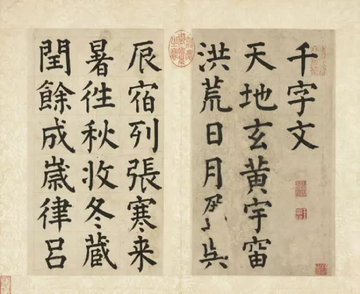 千字文
天地玄黄宇宙
洪荒日月
辰宿列張寒来
暑徃秋收冬藏
閏餘成歲律吕